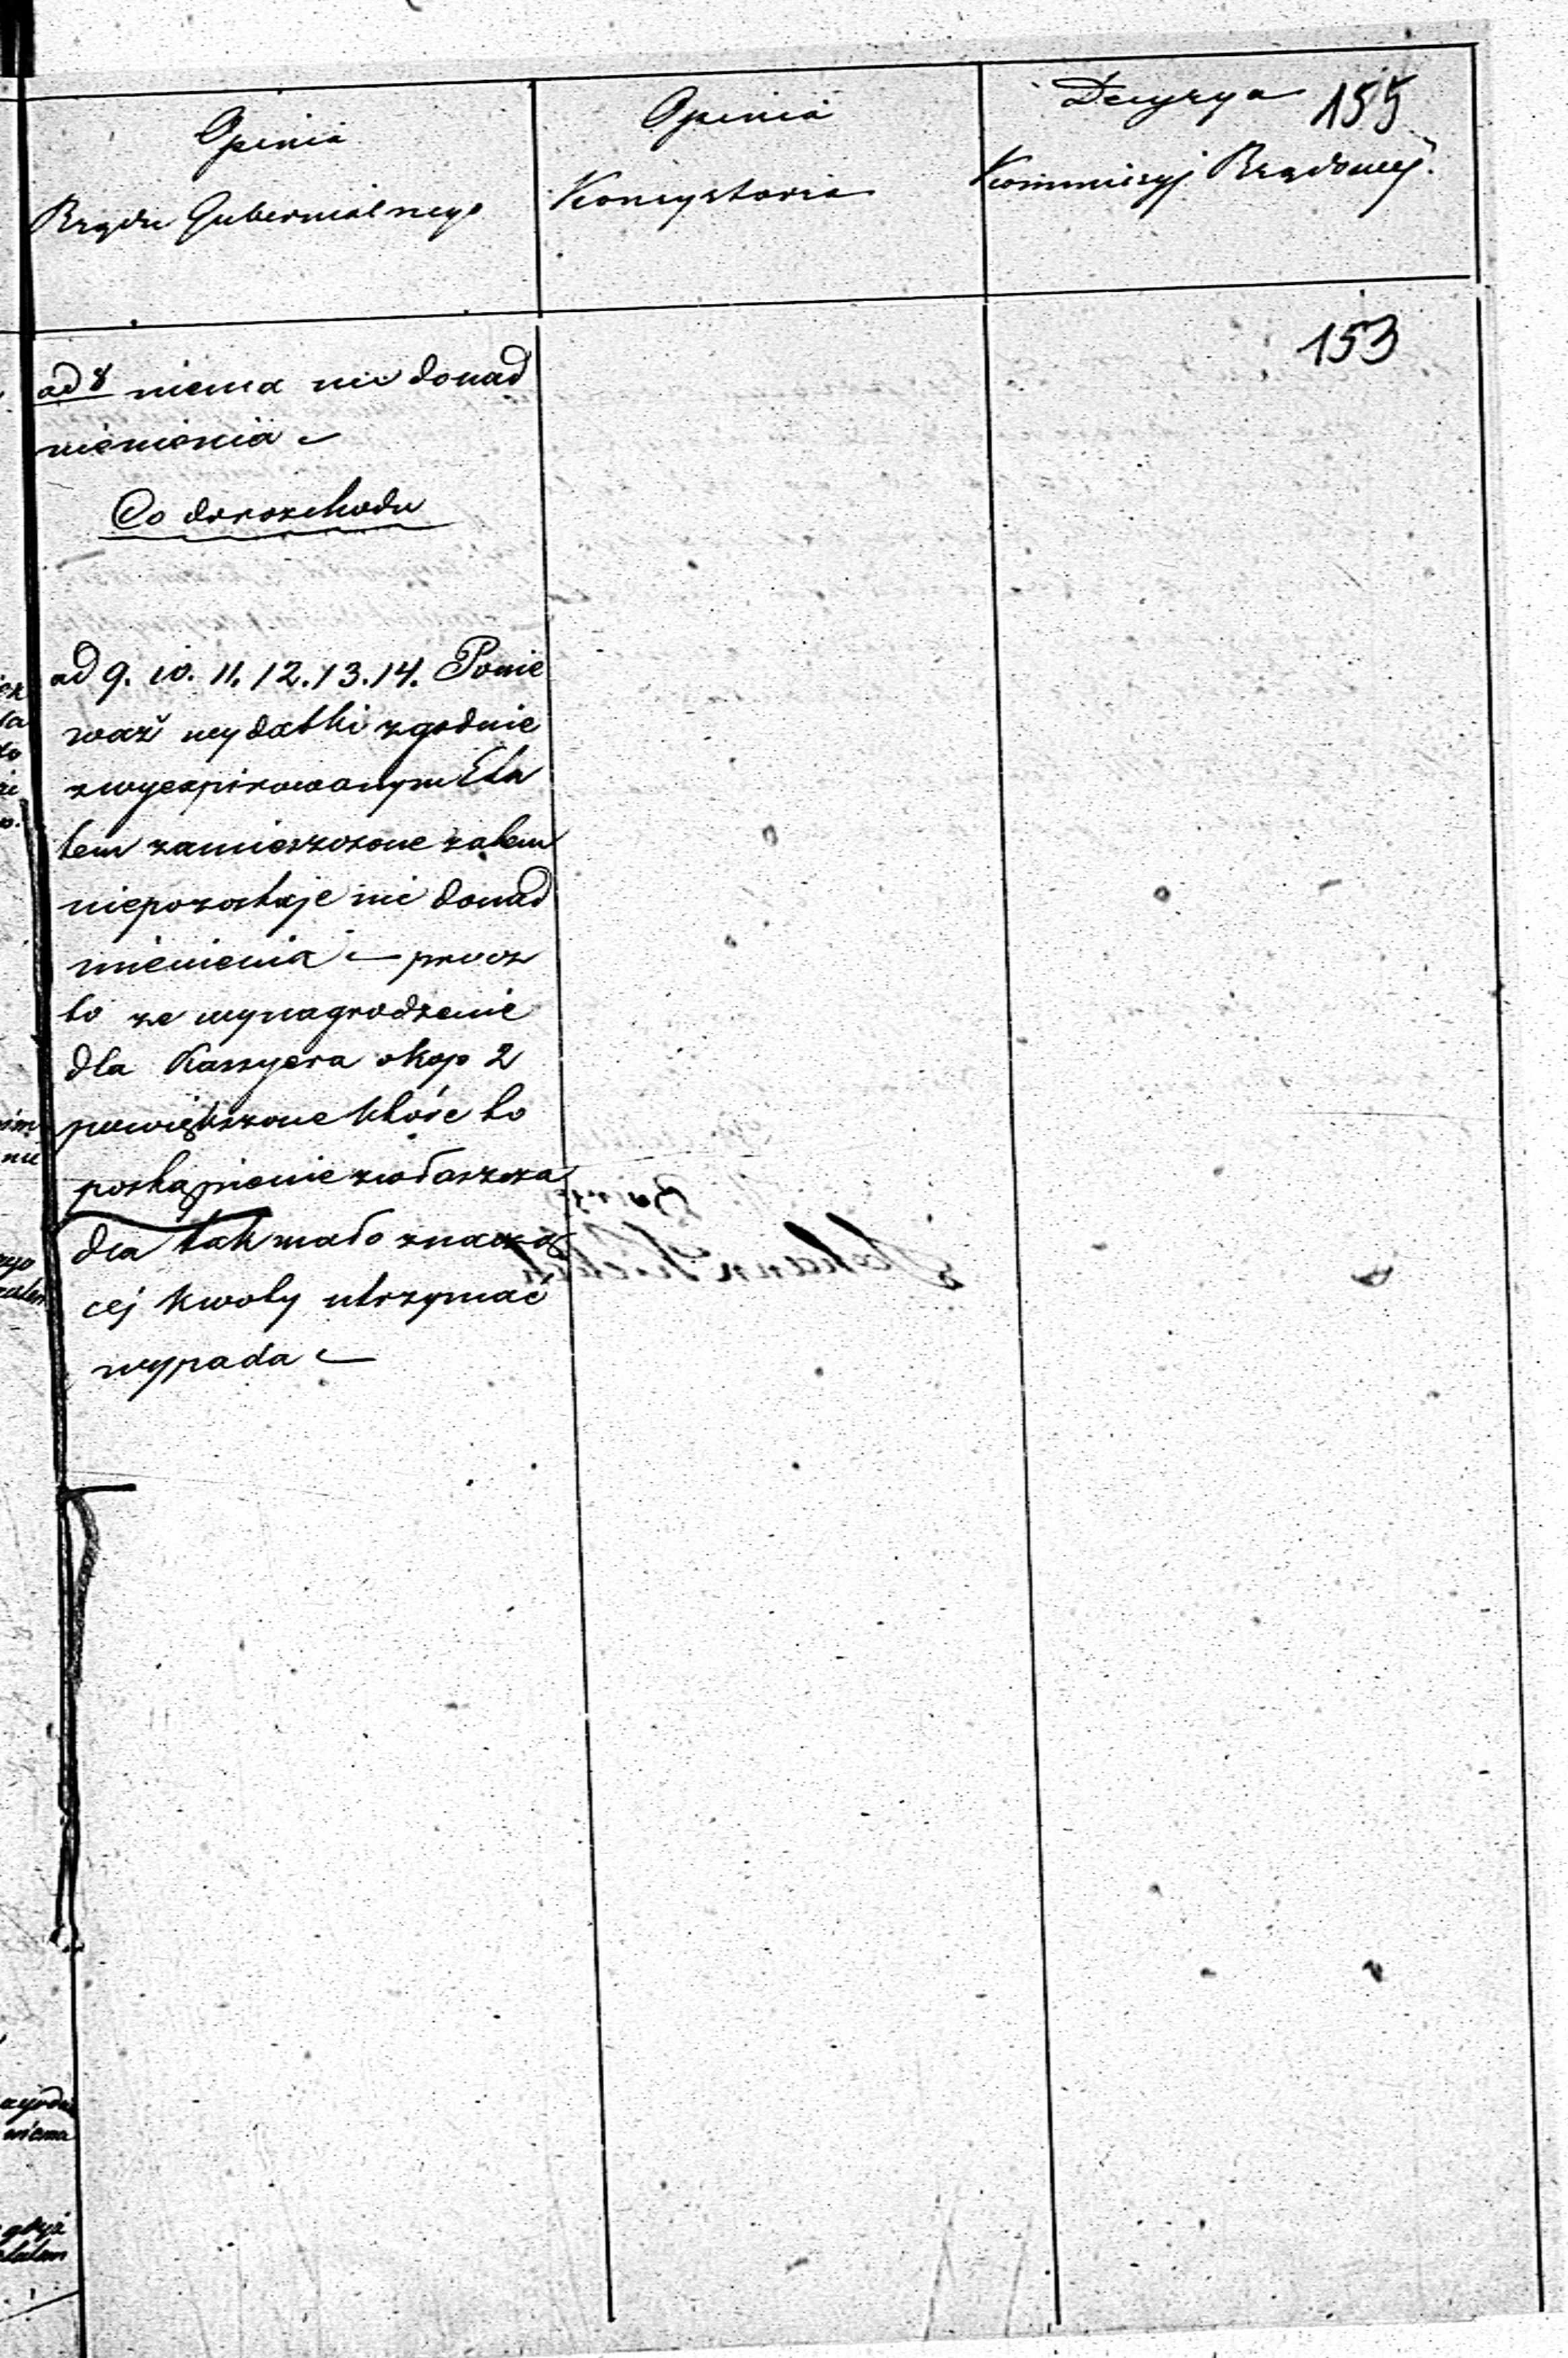 Opinia
Rządu Gubernialnego
Opinia
Konsystorza
Decyzya 155
Kommissyj Rządowej.
153
ad 8 niema nic donad
mienienia
Co do rozchodu
ad 9. 10. 11. 12. 13. 14. Ponie
waż wydatki zgodnie
z wyexpirowanym Eta
tem zamieszczone zatem
niepozostaje nic donad
mienienia – prócz
to ze wynagrodzenie
dla Kassyera o kop 2
powiększone któreto
postąpienie zwłaszcza
dla tak mało znaczą
cej kwoty utrzymać
wypada